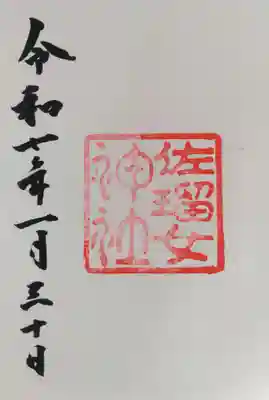 佐瑠女
神社
令和七年一月三十日